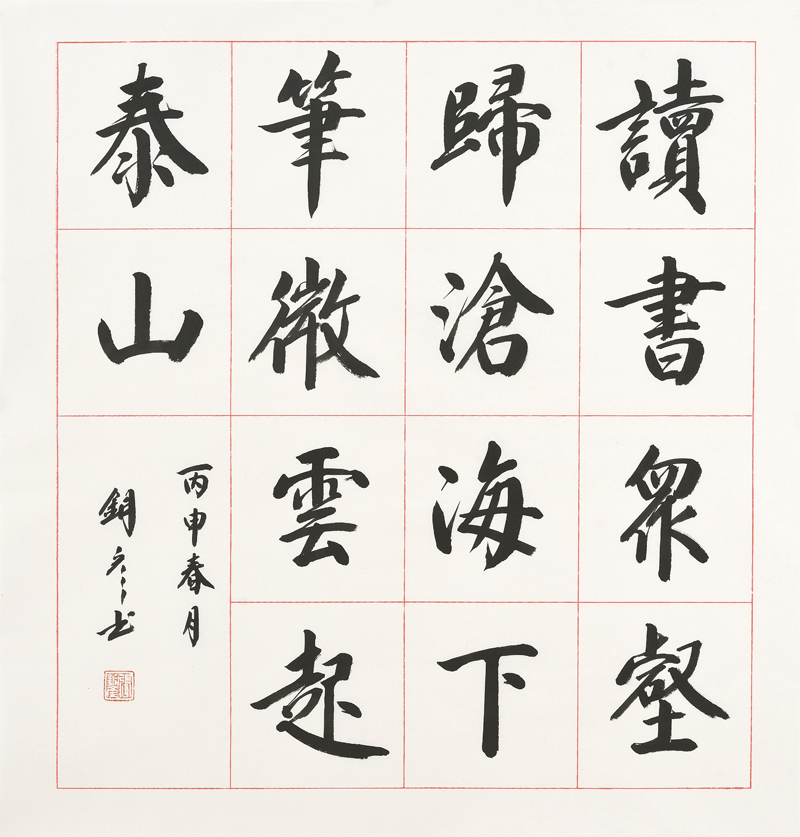 讀書衆壑
歸滄海下
筆微雲起
泰山
丙申春月